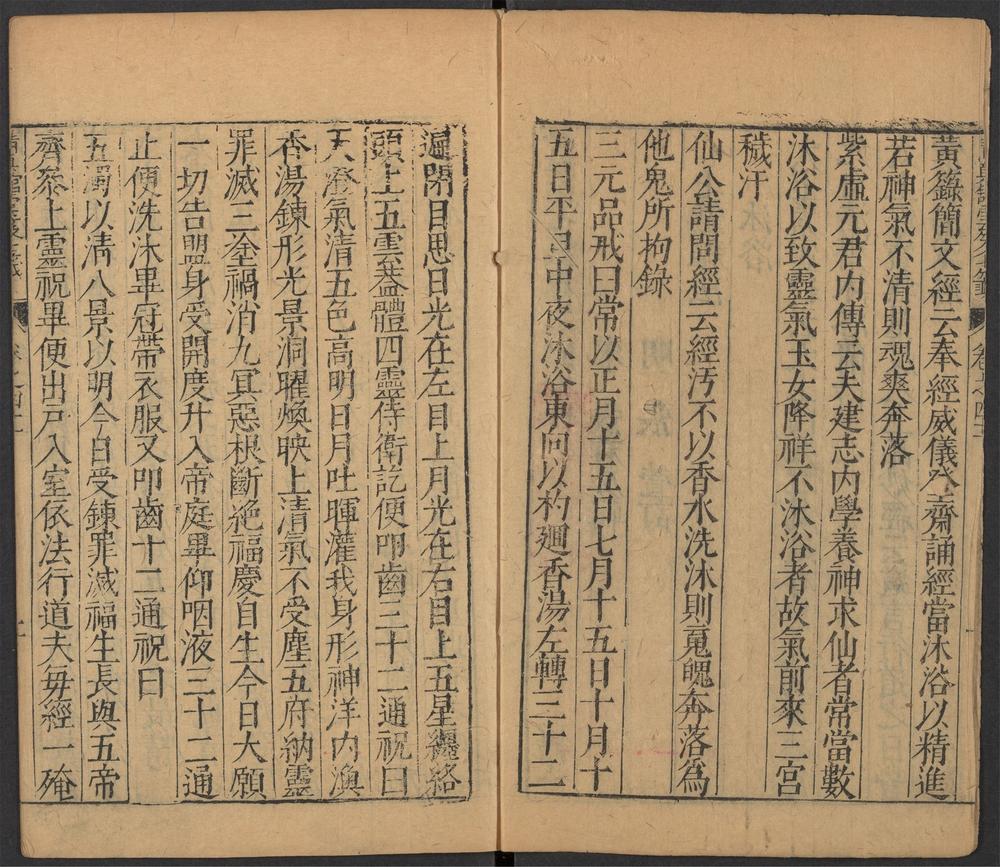 黃籙簡文經云奉經威儀登齋誦經當沐浴以精進
若神氣不清則魂爽奔落
紫虛元君内傳云夫建志内學養神求仙者常當數
沐浴以致靈氣玉女降祥不沐浴者故氣前來三宮
穢汙
仙公請問經云經汚不以香水洗沐則䰟魄奔落為
他鬼所拘錄
三元品戒曰常以正月十五日七月十五日十月十
五日平旦中夜沐浴東向以杓迴香湯左轉三十二
遍閉目思日光在左目上月光在右目上五星纏絡
頭上五雲葢體四靈侍衛訖便叩齒三十二通祝曰
天澄氣清五色高明日月吐暉灌我身形神洋内澳
香湯鍊形光景洞曜煥映上清氣不受塵五府納靈
罪滅三塗禍消九冥惡根斷絕福慶自生今日大願
一切告盟身受開度升入帝庭畢仰咽液三十二通
止便洗沐畢冠帶衣服又叩齒十二通祝曰
五濁以清八景以明今日受鍊罪滅福生長與五帝
齊參上靈祝畢便出戸入室依法行道夫每經一殗